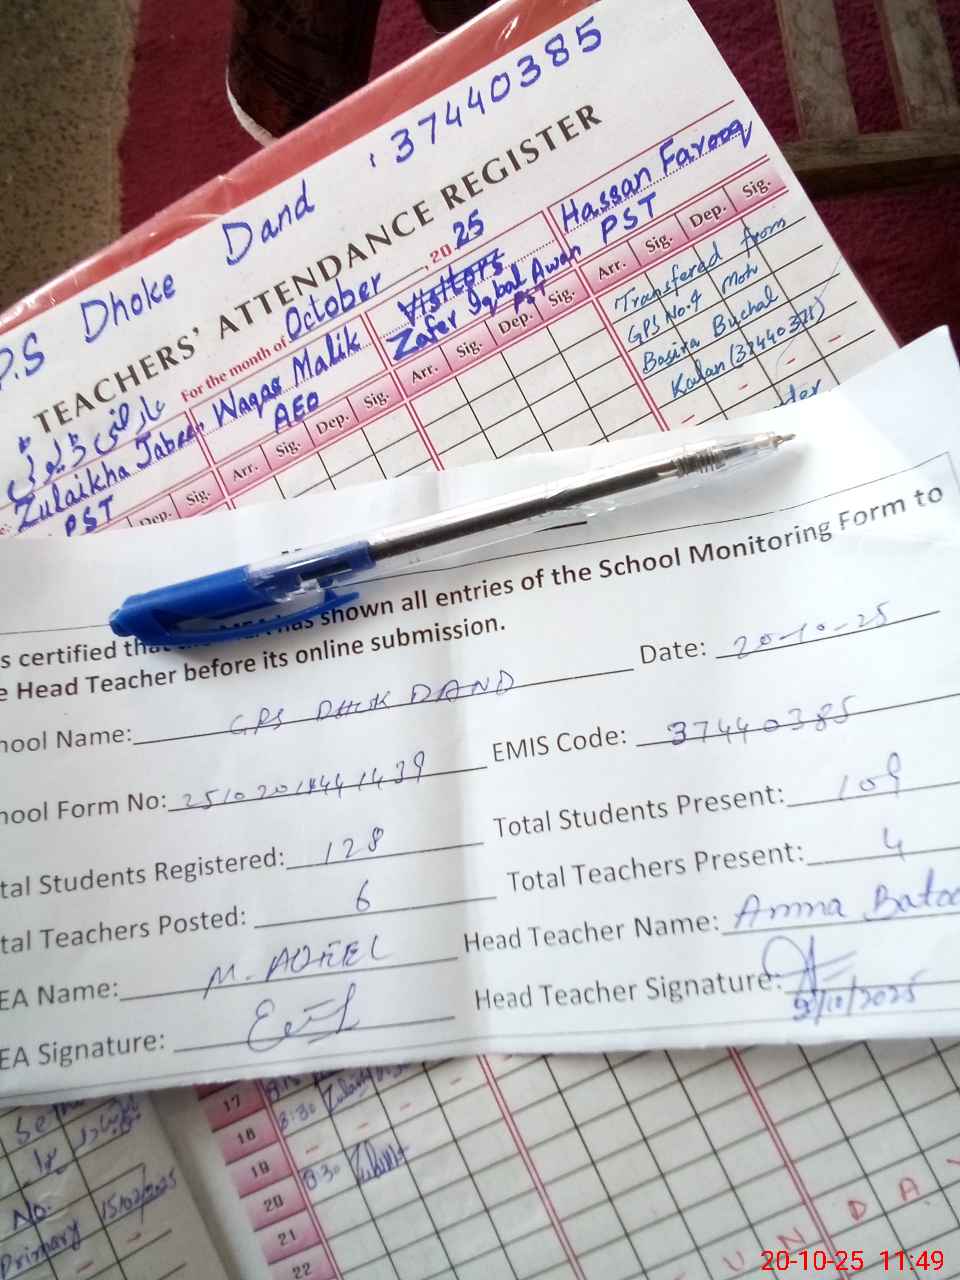 P.S Dhoke Dand : 37440385
TEACHERS' ATTENDANCE REGISTER
For the month of October, 2025
Zulaikha Jabeen
PST
Waqas Malik
AEO
Visitors
Zafer Iqbal Awan
PST
Hassan Farooq
PST
Dep. Sig.
Arr. Sig. Dep. Sig.
Arr. Sig. Dep. Sig.
Arr. Sig. Dep. Sig.
Transfered from
GPS No.4 Moh
Basira Buchal
Kalan (37440371)
s certified that the MEA has shown all entries of the School Monitoring Form to
e Head Teacher before its online submission.
hool Name: GPS DHOK DAND Date: 20-10-25
hool Form No: EMIS Code: 37440385
tal Students Registered: 128 Total Students Present: 109
tal Teachers Posted: 6 Total Teachers Present: 4
EA Name: M. ADEEL Head Teacher Name: Amna Batoo
EA Signature: Head Teacher Signature:
/10/2025
17 8:30
18
19 8:30
20
21
22
No.
Primary
15/02/2025
U N D A Y
20-10-25 11:49